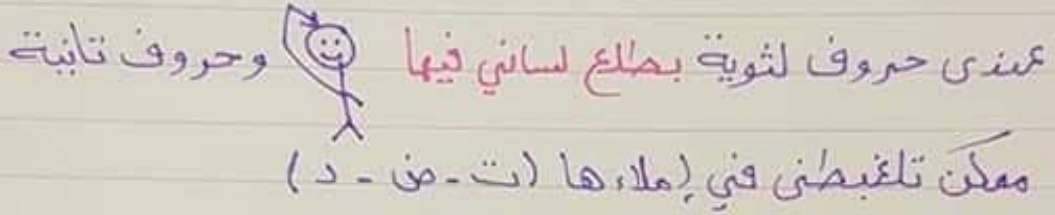 عندى حروف لثوية بطلع لساني فيها وحروف تانية
ممكن تلغبطنى في إملاءها (ت - ض - د)